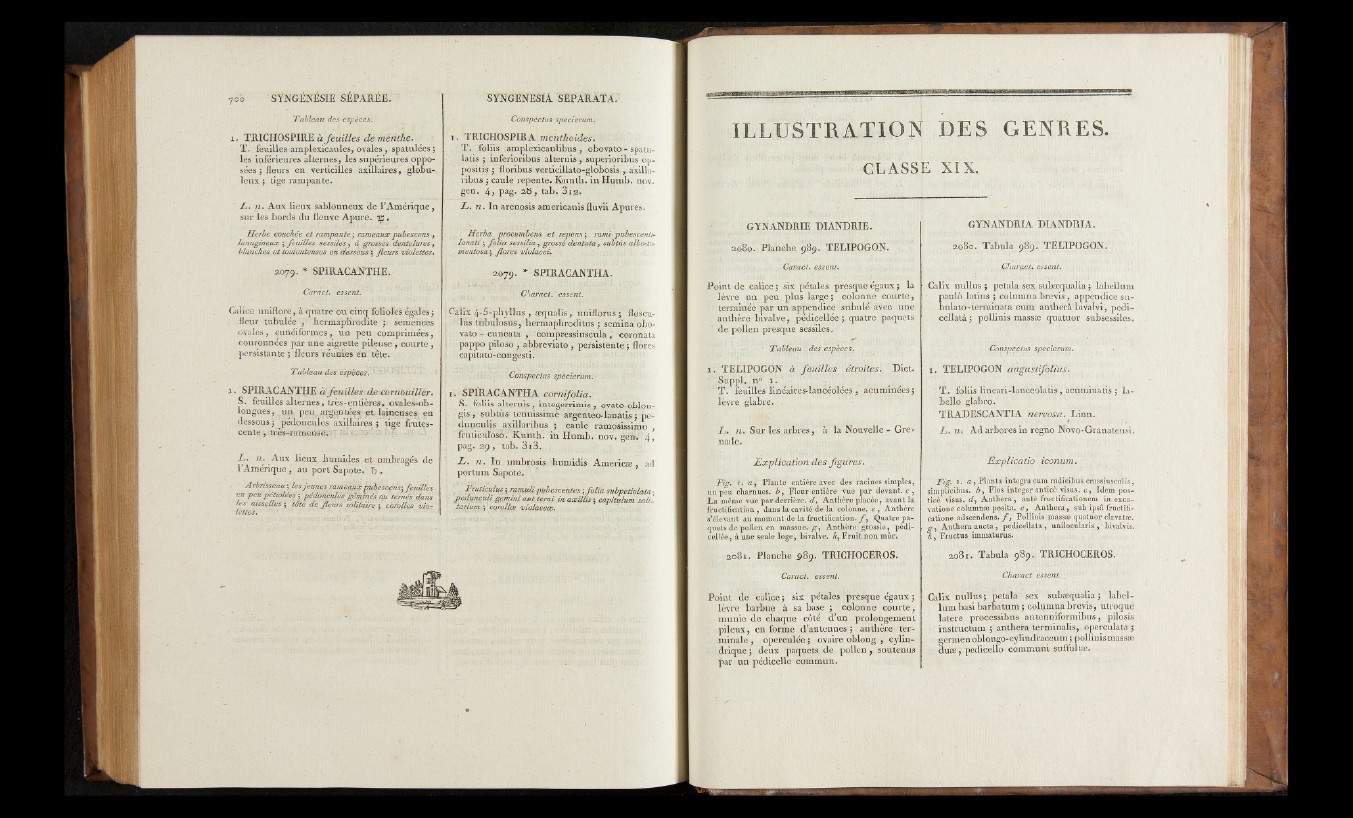 700 SYNGÉNÉSIE SÉPARÉE.
Tableau des espèces.
1. TRICHOSPIRE à feuilles de menthe.
T. feuilles amplexicaules, ovales, spatulées;
les inférieures alternes, les supérieures oppo-
sées; fleurs en verticilles axillaires, globu-
leux; tige rampante.
L. n. Aux lieux sablonneux de l'Amérique,
sur les bords du fleuve Apure.
Herbe couchée et rampante; rameaux pubescens,
lanugineux; feuilles sessiles, à grosses dentelures,
blanches et tomenteuses en dessous; fleurs violettes.
2079. * SPIRACANTHE.
Caract. essent.
Calice uniflore, à quatre ou cinq folioles égales;
fleur tubulée, hermaphrodite; semences
ovales, cunéiformes, un peu comprimées,
couronnées par une aigrette pileuse, courte,
persistante; fleurs réunies en tête.
Tableau des espèces.
1. SPIRACANTHE à feuilles de cornouiller.
S. feuilles alternes, très-entières, ovales-ob-
longues, un peu argentées et laineuses en
dessous; pédoncules axillaires; tige frutes-
cente, très-rameuse.
L. n. Aux lieux humides et ombragés de
l'Amérique, au port Sapote. ♄.
Arbrisseau; les jeunes rameaux pubescens; feuilles
un peu pétiolées; pédoncules géminés ou ternés dans
les aisselles; tête de fleurs solitaire; corolles vio-
lettes.
SYNGENESIA SEPARATA.
Conspectus specierum.
1. TRICHOSPIRA menthoides.
T. foliis amplexicaulibus, obovato-spatu-
latis; inferioribus alternis, superioribus op-
positis; floribus verticillato-globosis, axilla-
ribus; caule repente. Kunth. in Humb. nov.
gen. 4, pag. 28, tab. 312.
L. n. In arenosis americanis fluvii Apures.
Herba procumbens et repens; rami pubescenti-
lanati; folia sessilia, grossè dentata, subtùs albo-to-
mentosa; flores violacei.
2079. * SPIRACANTHA.
Charact. essent.
Calix 4-5-phyllus, æqualis, uniflorus; floscu-
lus tubulosus, hermaphroditus; semina obo-
vato-cuneata, compressiuscula, coronata
pappo piloso, abbreviato, persistente; flores
capitato-congesti.
Conspectus specierum.
1. SPIRACANTHA cornifolia.
S. foliis alternis, integerrimis, ovato oblon-
gis, subtùs tenuissimè argenteo-lanatis; pe-
dunculis axillaribus; caule ramosissimo,
fruticuloso. Kunth. in Humb. nov. gen. 4,
pag. 29, tab. 313.
L. n. In umbrosis humidis Americæ, ad
portum Sapote.
Fruticulus; ramuli pubescentes; folia subpetiolata;
pedunculi gemini aut terni in axillis; capitulum soli-
tarium; corollæ violaceæ.
ILLUSTRATION DES GENRES.
CLASSE XIX.
GYNANDRIE DIANDRIE.
2080. Planche 989. TELIPOGON.
Caract. essent.
Point de calice; six pétales presque égaux; la
lèvre un peu plus large; colonne courte,
terminée par un appendice subulé avec une
anthère bivalve, pédicellée; quatre paquets
de pollen presque sessiles.
Tableau des espèces.
1. TELIPOGON à feuilles étroites. Dict.
Suppl. n° 1.
T. feuilles linéaires-lancéolées, acuminées;
lèvre glabre.
L. n. Sur les arbres, à la Nouvelle-Gre-
nade.
Explication des figures.
Fig. 1. a, Plante entière avec des racines simples,
un peu charnues. b, Fleur entière vue par devant. c,
La même vue par derrière. d, Anthère placée, avant la
fructification, dans la cavité de la colonne. e, Anthère
s'élevant au moment de la fructification. f, Quatre pa-
quets de pollen en massue. g, Anthère grossie, pédi-
cellée, à une seule loge, bivalve. h, Fruit non mûr.
2081. Planche 989. TRICHOCEROS.
Caract. essent.
Point de calice; six pétales presque égaux;
lèvre barbue à sa base; colonne courte,
munie de chaque côté d'un prolongement
pileux, en forme d'antennes; anthère ter-
minale, operculée; ovaire oblong, cylin-
drique; deux paquets de pollen, soutenus
par un pédicelle commun.
GYNANDRIA DIANDRIA.
2080. Tabula 989. TELIPOGON.
Charact. essent.
Calix nullus; petala sex subæqualia; labellum
paulò latius; columna brevis, appendice su-
bulato-terminata cum antherâ bivalvi, pedi-
cellatâ; pollinis massæ quatuor subsessiles.
Conspectus specierum.
1. TELIPOGON angustifolius.
T. foliis lineari-lanceolatis, acuminatis; la-
bello glabro.
TRADESCANTIA nervosa. Linn.
L. n. Ad arbores in regno Novo-Granatensi.
Explicatio iconum.
Fig. 1. a, Planta integra cum radicibus crassiusculis,
simplicibus. b, Flos integer anticè visus. c, Idem pos-
ticè visus. d, Anthera, antè fructificationem in exca-
vatione columnæ posita. e, Anthera, sub ipsâ fructifi-
catione adscendens. f, Pollinis massæ quatuor clavatæ.
g, Anthera aucta, pedicellata, unilocularis, bivalvis.
h, Fructus immaturus.
2081. Tabula 989. TRICHOCEROS.
Charact essent.
Calix nullus; petala sex subæqualia; label-
lum basi barbatum; columna brevis, utroque
latere processibus antenniformibus, pilosis
instructum; anthera terminalis, operculata;
germen oblongo-cylindraceum; pollinis massæ
duæ, pedicello communi suffultæ.